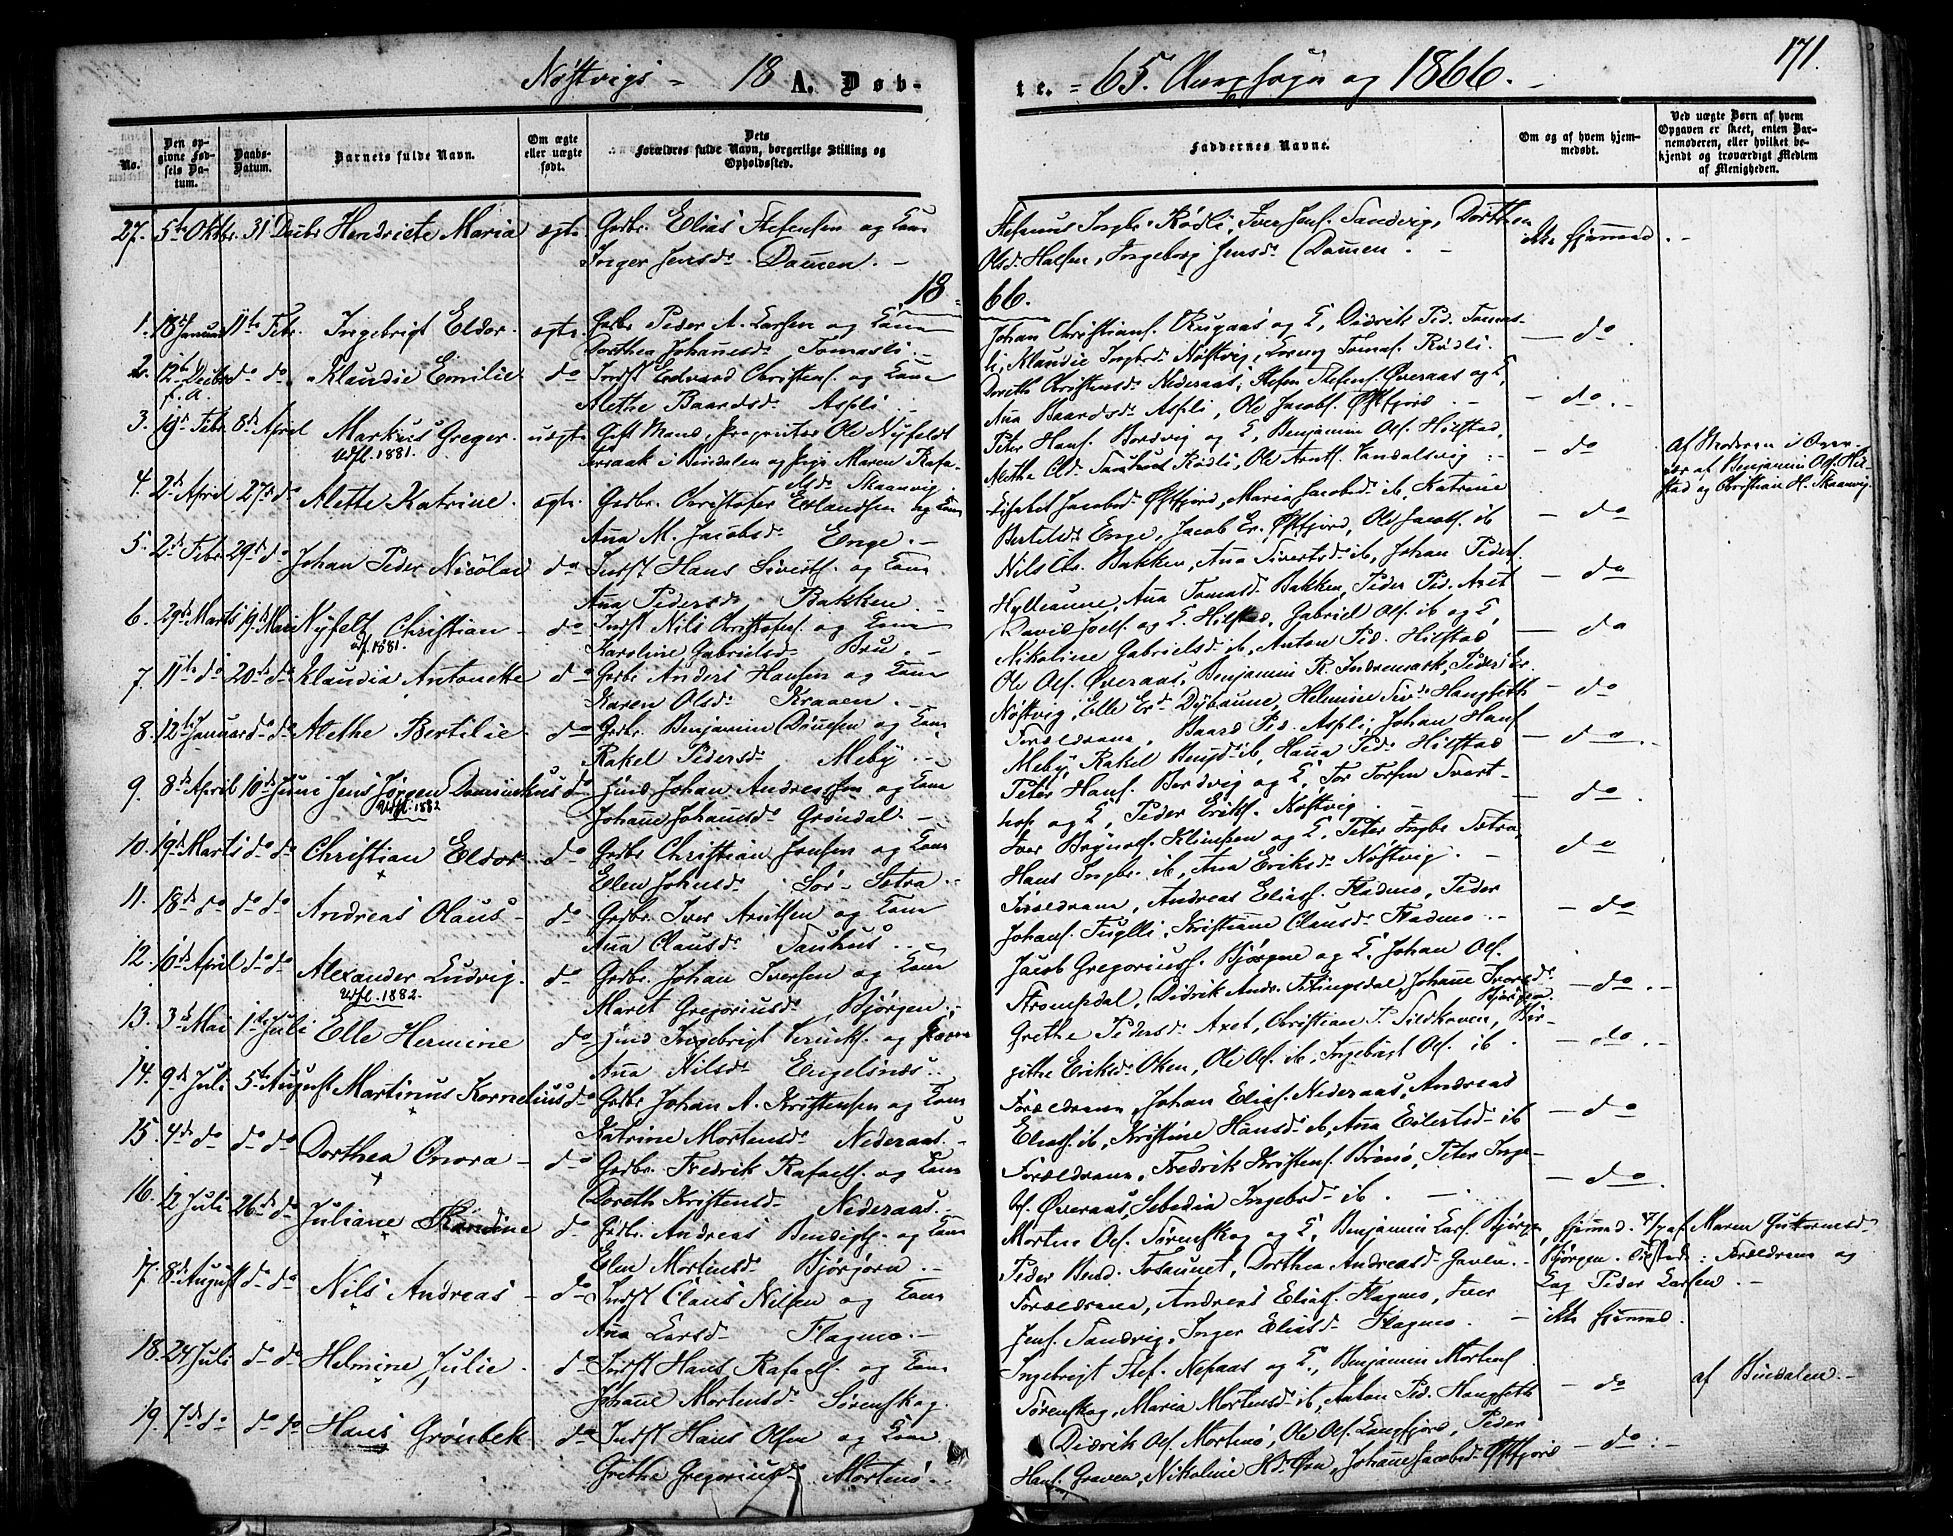 Nöstvigs - 18 A. Døb-
te. = 65. Annexsogn og 1866. -
171.
No.
Den opgivne Fødsels Datum.
Daabs-Datum.
Barnets fulde Navn.
Om ægte eller uægte født.
Dets Forældres fulde Navn, borgerlige Stilling og Opholdssted.
Faddernes Navne.
Om og af hvem hjemmedøbt.
Ved uægte Børn af hvem Opgaven er skeet, enten Barnemoderen, eller hvilket bekjendt og troværdigt Medlem af Menigheden.
27. 5te Oktbr. 31 Decbr Hendriete Maria ægte Gdbr. Elias Stefensen og Kone
Inger Jensd. Damen. -
Stefanus Ingbr. Rødli, Iver Jens. Sandvig, Dorthea
Olsd. Halsen, Ingeborg Jensd. Damen. - ikke hjemmed. -
18 = 66.
1. 18d Januar 11te Febr. Ingebrigt Eldor. ægte Gdbr. Peder A. Larsen og Kone
Dorthea Johansd. Tomasli. -
Johan Christians. Rugaas og K, Didrik Ped. Tomas-
li, Klaudie Ingebd. Nöstvig, Tomas. Rødli. - do.
2. 12te Decbr f.a. do do Klaudie Emilie do Indst Edvard Christens. og Kone
Alethe Baardsd. Aspli. -
Doreth Christensd. Nederaas, Stefen Stefens. Øveraas og K,
Ana Baardsd. Aspli, Ole Jacobs. Østfjord. - do. -
3. 19d Febr 8de April Markus Greger. uægte Gift Mand, Proprietær Ole Nyfeldt
Udfl. 1881.
Terraak i Bindalen og Pige Maren Rafa-
elsd. Skaanvig.
Peter Hans. Bordvig og K, Benjamin Ols. Hilstad,
Alethe Old. Rødli, Ole Arnts. Vandalsvig. - do
Af Moderen i Over-
vær af Benjamin Ols. Hil-
stad og Christian H. Skaanvig.
4. 2d April 27de do Alette Katrine. ægte Gdbr. Christofer Erlandsen og Kone
Ana M. Jacobsd. Enge. -
Lisabet Jacobsd. Østfjord, Maria Jacobsd. ib, Katrine
Bertelsd. Enge, Jacob Er. Østfjord, Ole Jacobs. ib - do
5. 2d Febr 29de do Johan Peder Nicolai do Indst Hans Siverts. og Kone
Ana Pedersd. Bakken. -
Nils Chr. Bakken, Ana Sivertsd. ib, Johan Peders.
Ana Tomasd. Bakken, Peder Ped. Axet - do
6. 29d Marts 19d Mai Nyfelt Christian - do Indst Nils Christofers. og Kone
Udfl. 1881.
Karoline Gabrielsd. Bru. -
David Joels. og K. Hilstad, Gabriel Ols. ib og K,
Nikoline Gabrielsd. ib, Anton Ped. Hilstad - do
7. 11te do 20de do Klaudia Antonette do Gdbr. Anders Hansen og Kone
Karen Olsd. Kraaen. -
Ole Ols. Øveraas, Benjamin R. Indremark, Peder Er.
Nöstvig, Elle Er.d. Dybaune, Helmine Haugseth - do
8. 12te Januar do do Alethe Bertilie. do Gdbr. Benjamin og Kone
Rakel Pedersd. Meby. -
Forældrene, Baard Ped. Aspli, Johan Hans.
Meby, Rakel Benjd. ib, Hana Ped. Hilstad - do. -
9. 8de April 10de Juni Jens Jørgen Daminikus do Hmd Johan Andreassen og Kone
Udfl. 1882
Johane Johansd. Grøndal. -
Peter Hans. Bordvig og K, Tor Torsen Svart-
hop og K, Peder Eriks. Nöstvig. - do.
10. 19d Marts do do Christian Eldor do Gdbr Christian Jensen og Kone
Ellen Johnsd. Sör-Sætra. -
Iver Brynols. Klimpen og K, Peter Ingbr. Sætra,
Hans Ingbr. ib, Ana Eriksd. Nöstvig. - do
11. 18de do do do Andreas Olaus - do Gdbr. Iver Arntsen og Kone
Ana Clausd.
Forældrene, Andreas Elias. Fladmo, Peder
Johans. Fuglli, Kristiane Clausd. Fladmo. - do
12. 6de April do do Alexander Ludvig. do Gdbr. Johan Iversen og Kone
Udfl. 1882.
Maret Gregoriusd. Bjørgen. -
Jacob Gregoriuss. Bjørgne og K, Johan Ols.
Strompdal, Didrik Andr. Johane Iversd.
Bjørgen. - do. -
13. 3d Mai 1ste Juli Elle Hermine do Hmd Ingebrigt og Kone
Ana Nilsd. Engelsnæs. -
Grethe Pedersd. Axet, Christian P. Sildhaven, Bir-
githe Eriksd. Oken, Ole Ols. ib, Ingebrigt Ols. ib. - do. -
14. 9d Juli 5te August Martinus Kornelius do Gdbr Johan A. Kristensen og Kone
Katrine Mortensd. Nederaas. -
Forældrene, Johan Elias. Nederaas, Andreas
Elias. ib, Kristine Hansd. ib, Ana Eilertsd. ib - do
15. 4de do do do Dorthea Onora - do Gdbr. Fredrik Rafaels. og Kone
Doreth Kristensd. Nederaas. -
Forældrene, Fredrik Kristens. Brönö, Peter Inge-
br. Øveraas, Sebedia Ingebrd. ib. - do.
16. 12 Juli 26de do Juliane do Gdbr. Andreas Bendigts. og Kone
Elen Mortensd. Bjørgorn. -
Morten Ols. Tørenskog og K, Benjamin Lars. Bjørge,
Peder Bend. Fosaunet, Dorthea Andreasd. Gaven. -
Hjemmed. 17/7 af Maren Guttormsd.
Bjørgen. Tilstede: Forældrene og
Lag Peder Larsen. -
17. 8de August do do Nils Andreas - do Indst Claus Nilsen og Kone
Ana Larsd. Flagmo. -
Forældrene, Andreas Elias. Flagmo, Iver
Jens. Sandvig, Inger Eliasd. Flagmo. - ikke hjemmed.
18. 24 Juli do do Helmine Julie. do Indst Hans Rafaels. og Kone
Johane Mortensd. Sørenskog.
Ingebrigt Stef. Nepaas og K., Benjamin Mortens.
Tørenskog, Maria Mortensd. ib, Anton Ped. Haugseth - do
af Bindalen. -
19. 7de do do do Hans Grönbek do Indst Hans Olsen og Kone
Grethe Gregoriusd. Mortenö. -
Didrik Ols. Mortenö, Ole Ols. Langfjord, Peder
Hans. Graven, Nikoline H.d. Øen, Johane Jacobsd. Østfjord - do. -